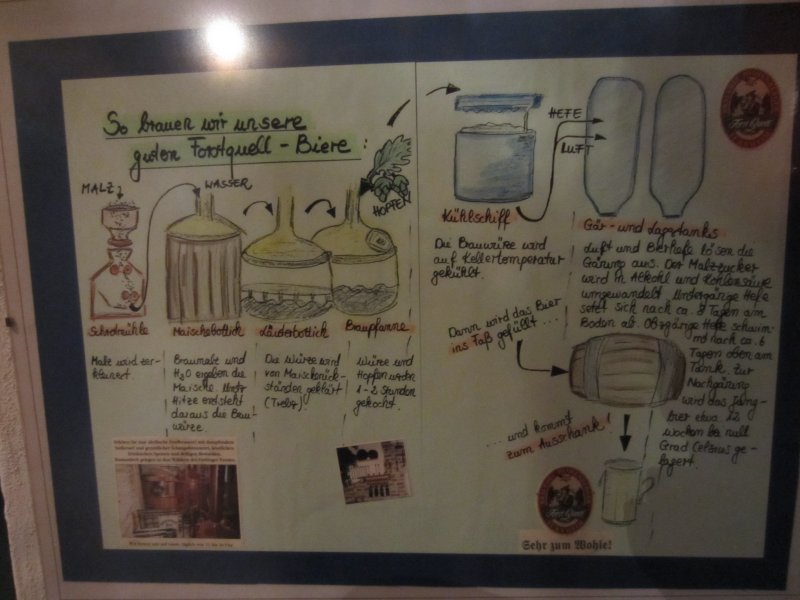 So brauen wir unsere
guten Forstquell-Biere:
MALZ
WASSER
HOPFEN
HEFE
LUFT
Schrotmühle
Malz wird zer-
kleinert.
Maischebottich
Braumalz und
H₂O ergeben die
Maische. Unter
Hitze entsteht
daraus die Brau-
würze.
Läuterbottich
Die Würze wird
von Maischerück-
ständen geklärt
(Treber).
Braupfanne
Würze und
Hopfen werden
1-2 Stunden
gekocht.
Kühlschiff
Die Brauwürze wird
auf Kellertemperatur
gekühlt.
Gär- und Lagertanks
Luft und Bierhefe lösen die
Gärung aus. Der Malzzucker
wird in Alkohol und Kohlensäure
umgewandelt. Untergärige Hefe
setzt sich nach ca. 8 Tagen am
Boden ab. Obergärige Hefe schwim-
md nach ca. 6
Tagen oben am
Tank. Zur
Nachgärung
wird das Jung-
bier etwa 12
Wochen bei null
Grad Celsius ge-
lagert.
Dann wird das Bier
ins Faß gefüllt ...
... und kommt
zum Ausschank!
Sehr zum Wohle!